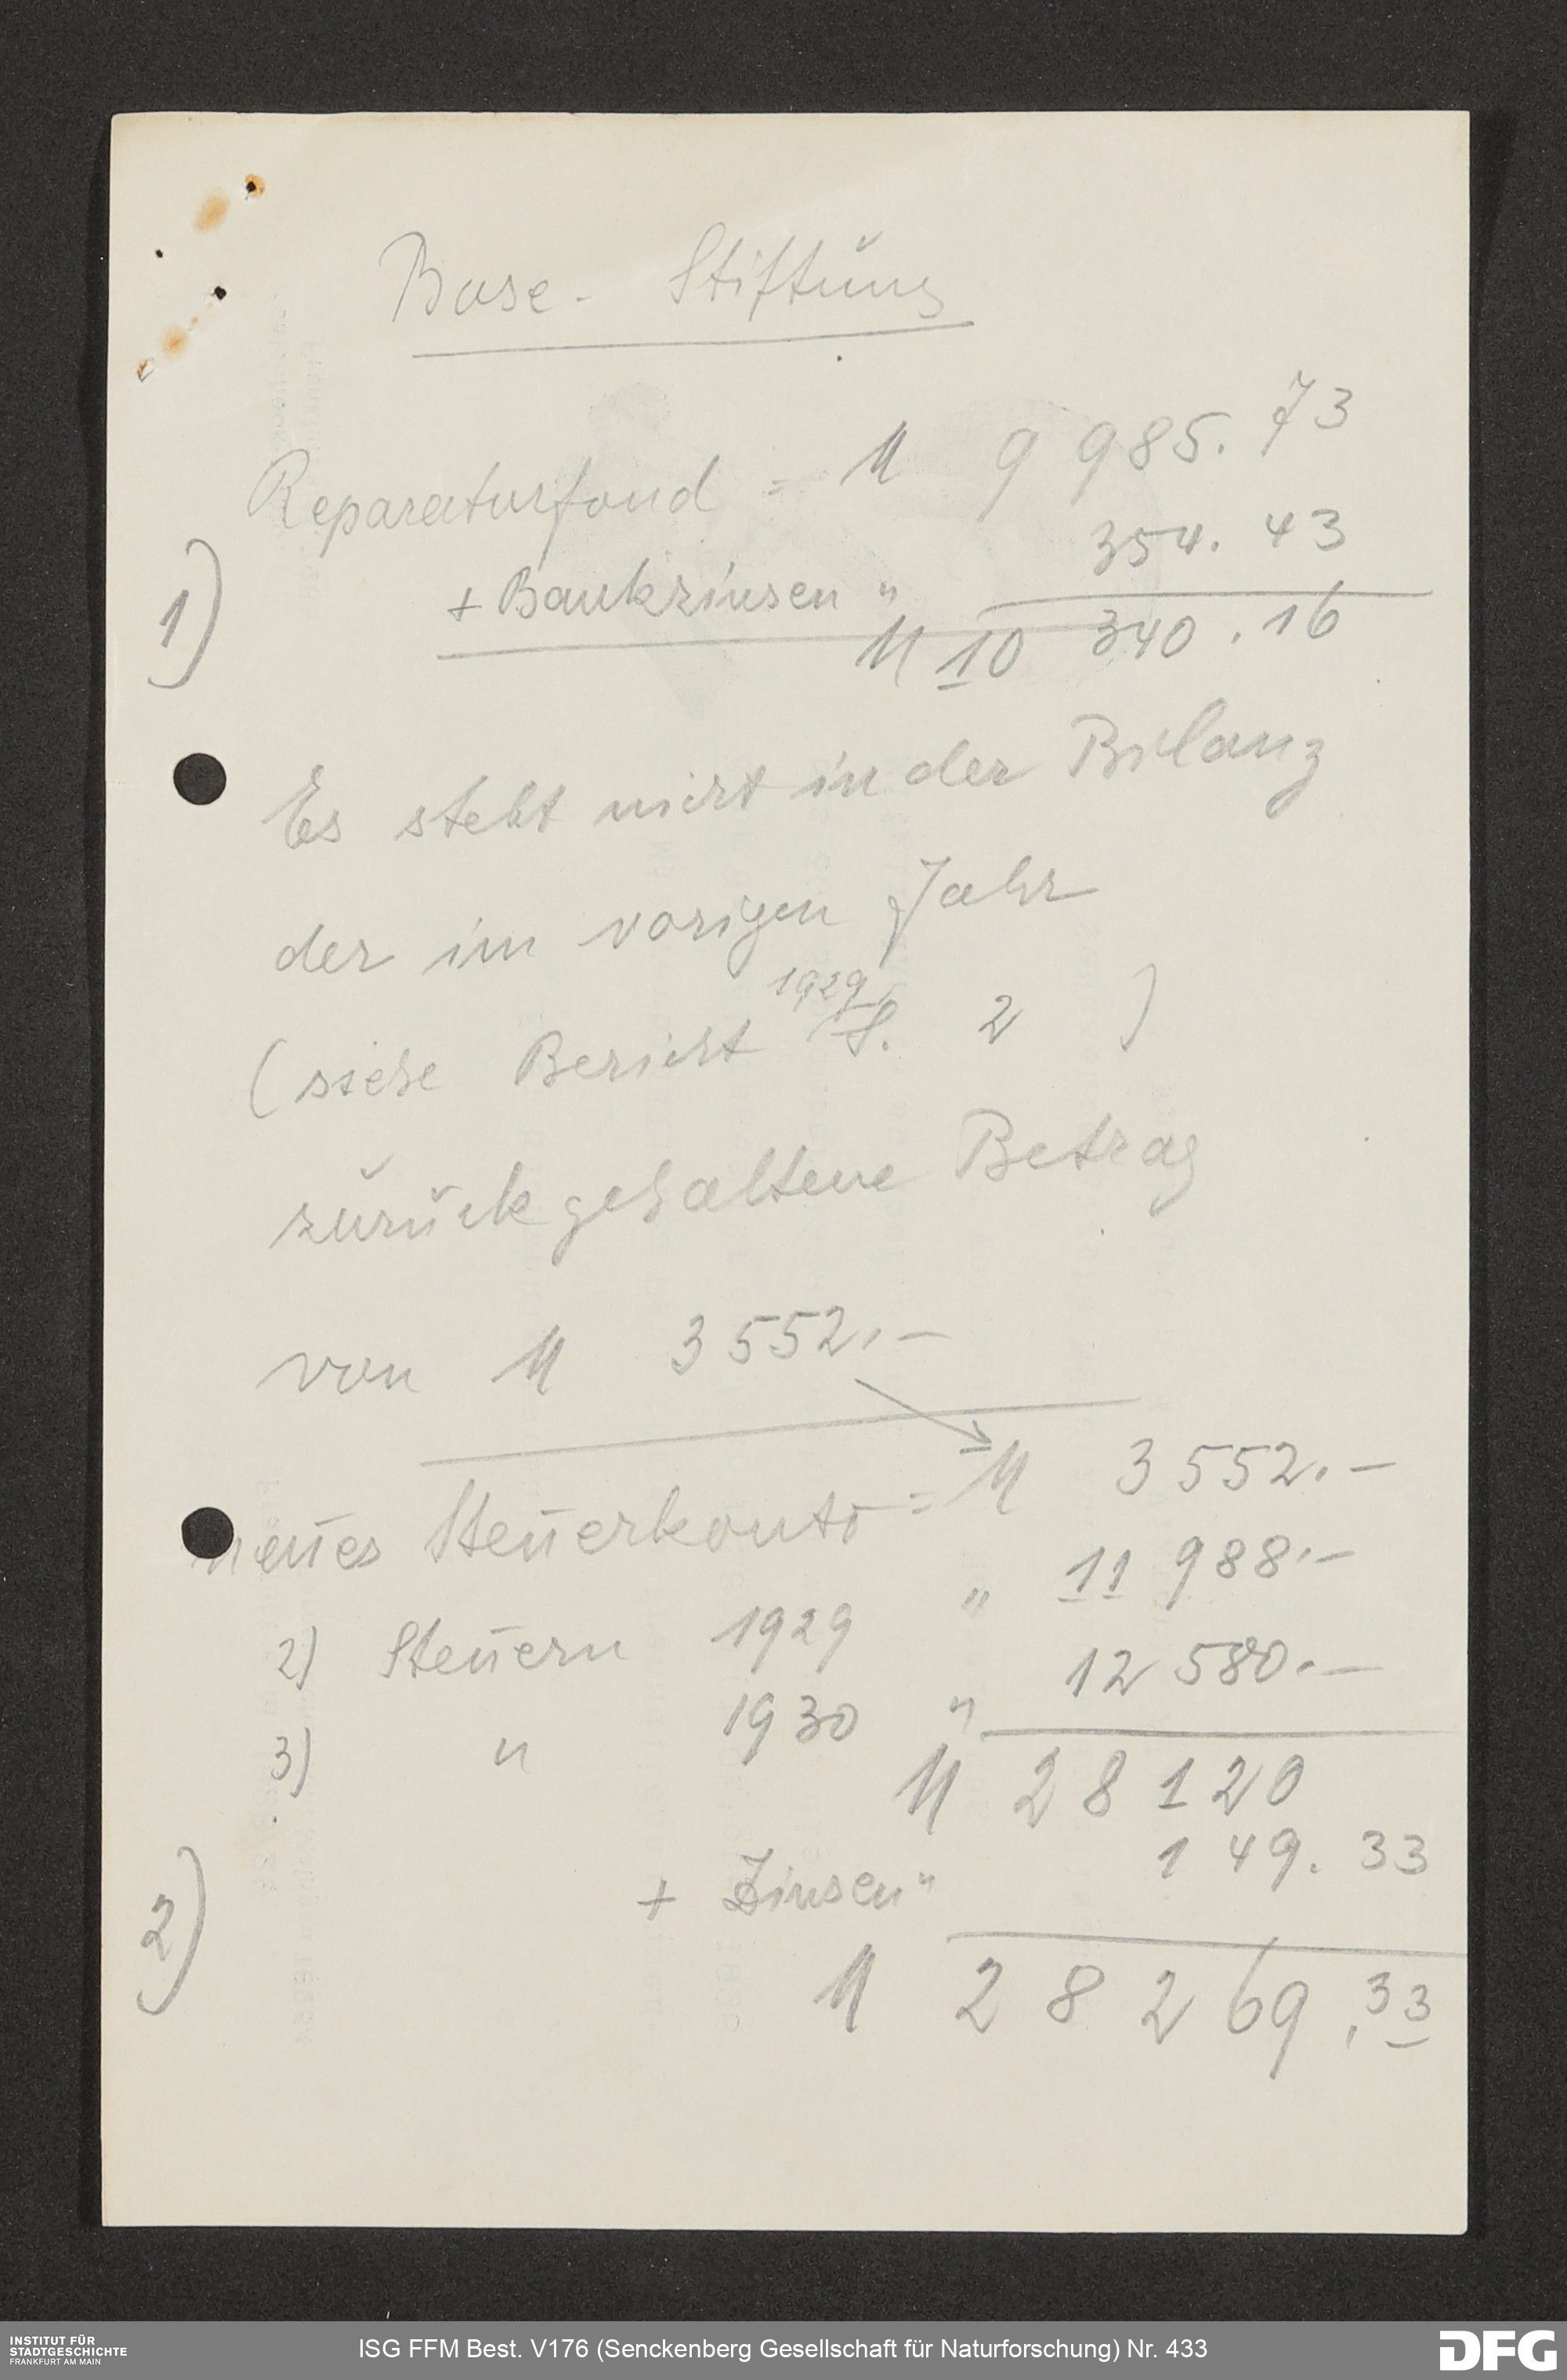 Bose - Stiftung
Reparaturfond = M 9 985.73
+ Bankzinsen " 354.43
1) M 10 340.16
Es steht nicht in der Bilanz
der im vorigen Jahr
(siehe Bericht 1929 S. 2 )
zurückgehaltene Betrag
von M 3552.-
neues Steuerkonto = M 3552.-
2) Steuern 1929 " 11 988.-
3) " 1930 " 12 580.-
M 28 120
+ Zinsen " 149.33
2) M 28 269,33
INSTITUT FÜR
STADTGESCHICHTE
FRANKFURT AM MAIN
ISG FFM Best. V176 (Senckenberg Gesellschaft für Naturforschung) Nr. 433
DFG